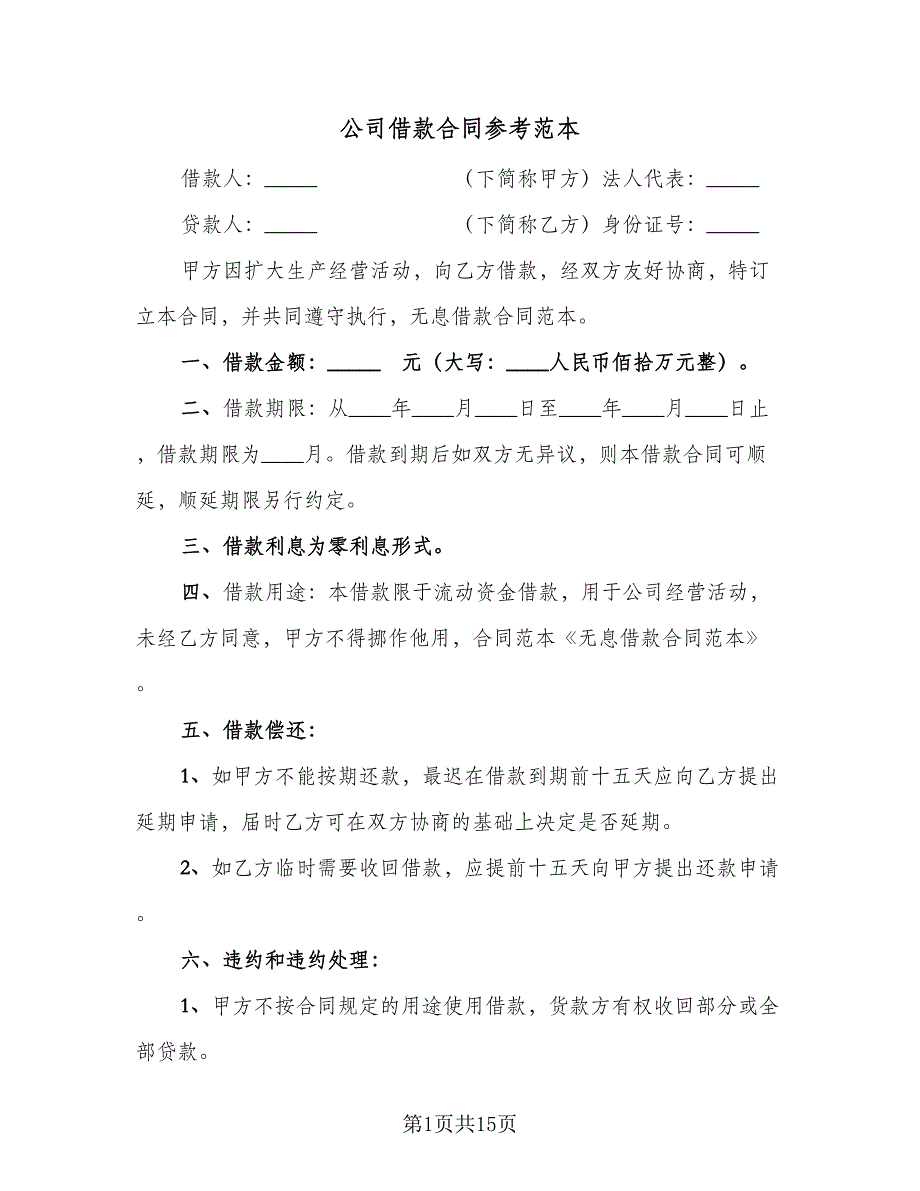 公司借款合同参考范本
借款人：_____ （下简称甲方）法人代表：_____
贷款人：_____ （下简称乙方）身份证号：_____
甲方因扩大生产经营活动，向乙方借款，经双方友好协商，特订
立本合同，并共同遵守执行，无息借款合同范本。
一、借款金额：_____ 元（大写：____人民币佰拾万元整）。
二、借款期限：从____年____月____日至____年____月____日止
，借款期限为____月。借款到期后如双方无异议，则本借款合同可顺
延，顺延期限另行约定。
三、借款利息为零利息形式。
四、借款用途：本借款限于流动资金借款，用于公司经营活动，
未经乙方同意，甲方不得挪作他用，合同范本《无息借款合同范本》
。
五、借款偿还：
1、如甲方不能按期还款，最迟在借款到期前十五天应向乙方提出
延期申请，届时乙方可在双方协商的基础上决定是否延期。
2、如乙方临时需要收回借款，应提前十五天向甲方提出还款申请
。
六、违约和违约处理：
1、甲方不按合同规定的用途使用借款，货款方有权收回部分或全
部贷款。
第1页共15页